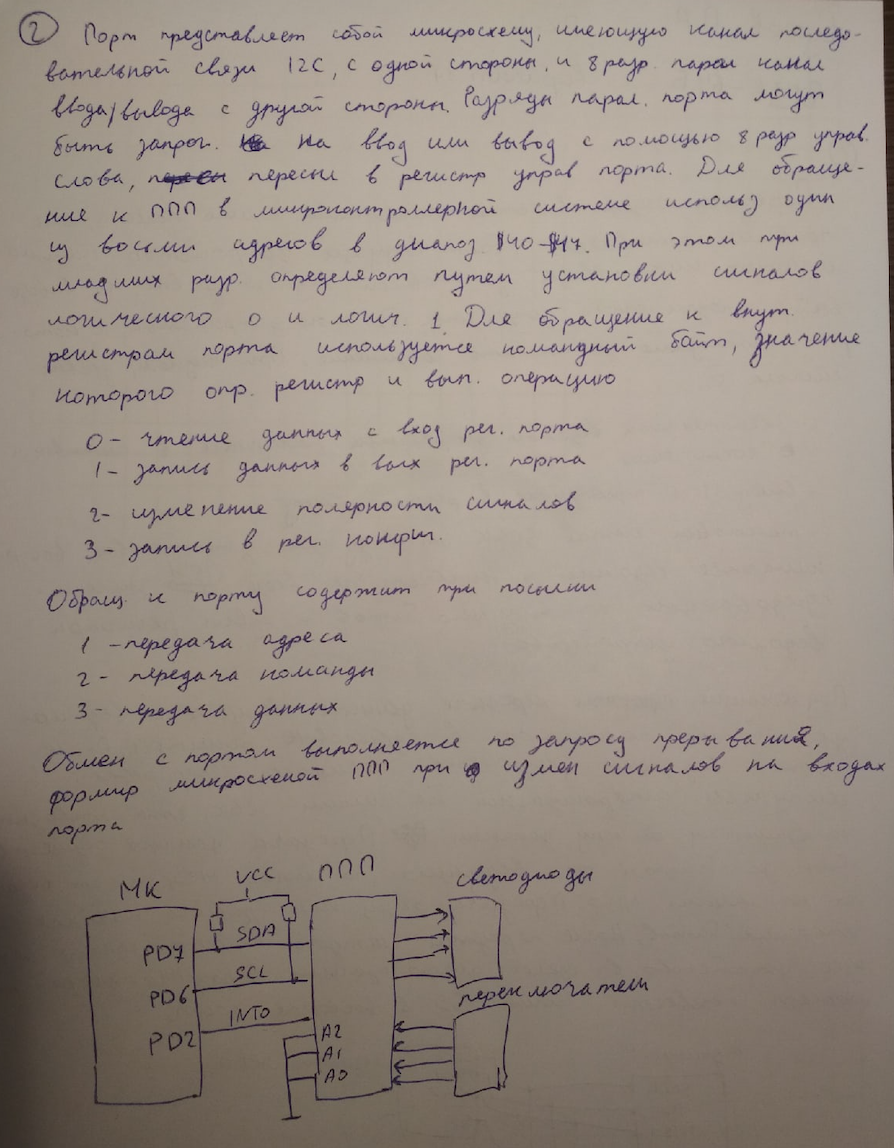 2 Порт представляет собой микросхему, имеющую канал последо-
вательной связи I2C, с одной стороны, и 8 разр. парал канал
ввода/вывода с другой стороны. Разряды парал. порта могут
быть запрог. на ввод или вывод с помощью 8 разр управ.
слова, пересыл в регистр управ порта. Для обраще-
ние к ППП в микроконтроллерной системе использ один
из восьми адресов в диапоз. $40-$47. При этом три
младших разр. определяют путем установки сигналов
логического 0 и логич. 1. Для обращение к внут.
регистрам порта используется командный байт, значение
которого опр. регистр и вып. операцию
0 - чтение данных с вход рег. порта
1 - запись данных в вых рег. порта
2 - изменение полярности сигналов
3 - запись в рег. конфиг.
Обращ. к порту содержит три посылки
1 - передача адреса
2 - передача команды
3 - передача данных
Обмен с портом выполняется по запросу прерываний,
формир микросхемой ППП при измен сигналов на входах
порта
МК VCC ППП светодиоды
PD7 SDA
PD6 SCL
переключатели
PD2 INT0
A2
A1
A0